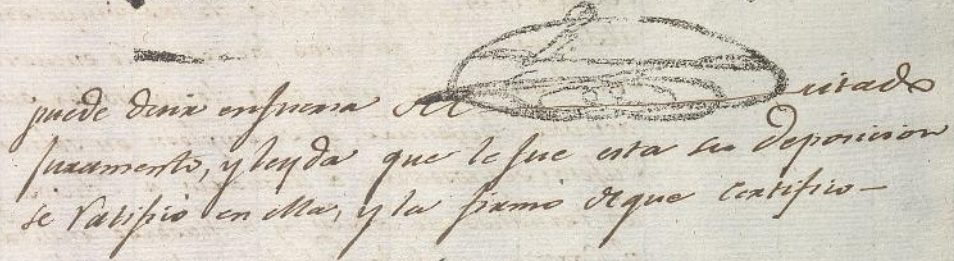 puede decir en fuerza del citado
juramento, y leyda que le fue esta su deposicion
se ratifico en ella, y la firmó de que certifico